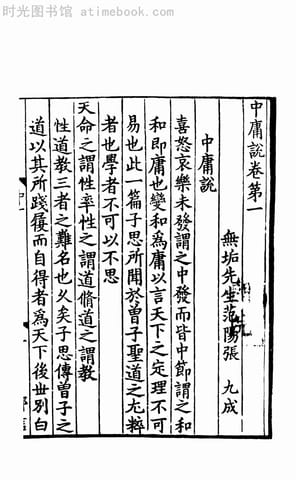 时光图书馆 atimebook.com
中庸說卷第一
無垢先生范陽張 九成
中庸說
喜怒哀樂未發謂之中發而皆中節謂之和
和即庸也變和為庸以言天下之定理不可
易也此一篇子思所聞於曾子聖道之尤粹
者也學者不可以不思
天命之謂性率性之謂道脩道之謂教
性道教三者之難名也久矣子思傳曾子之
道以其所踐屨而自得者為天下後世別白